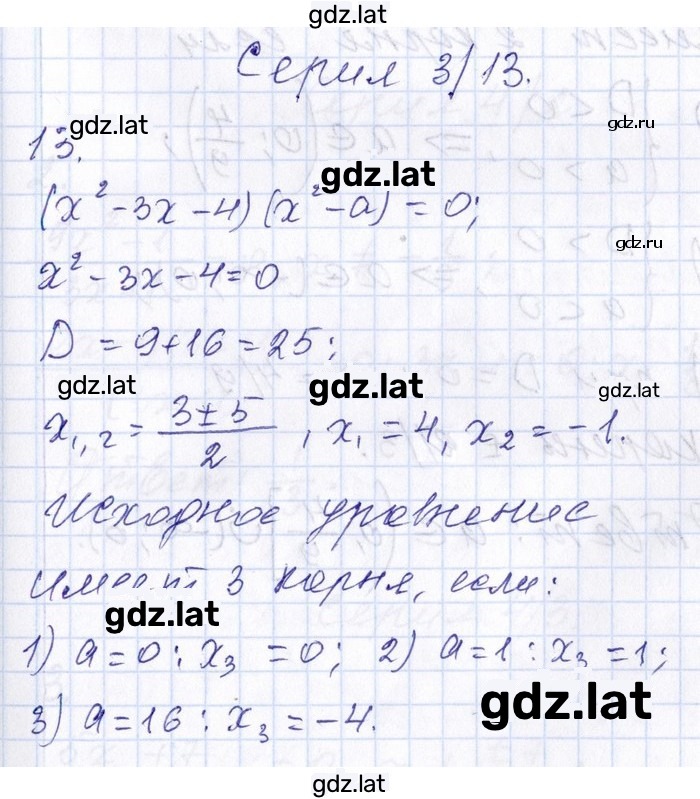 gdz.lat
Серия 3/13.
gdz.lat
gdz.ru
13.
gdz.lat
(x² - 3x - 4)(x² - a) = 0;
gdz.ru
x² - 3x - 4 = 0
D = 9 + 16 = 25;
gdz.lat gdz.lat gdz.lat
x₁,₂ = (3 ± 5)/2, x₁ = 4, x₂ = -1.
Исходное уравнение
имеет 3 корня, если:
gdz.lat
1) a = 0 : x₃ = 0; 2) a = 1 : x₃ = 1;
gdz.lat
3) a = 16 : x₃ = -4.
gdz.lat